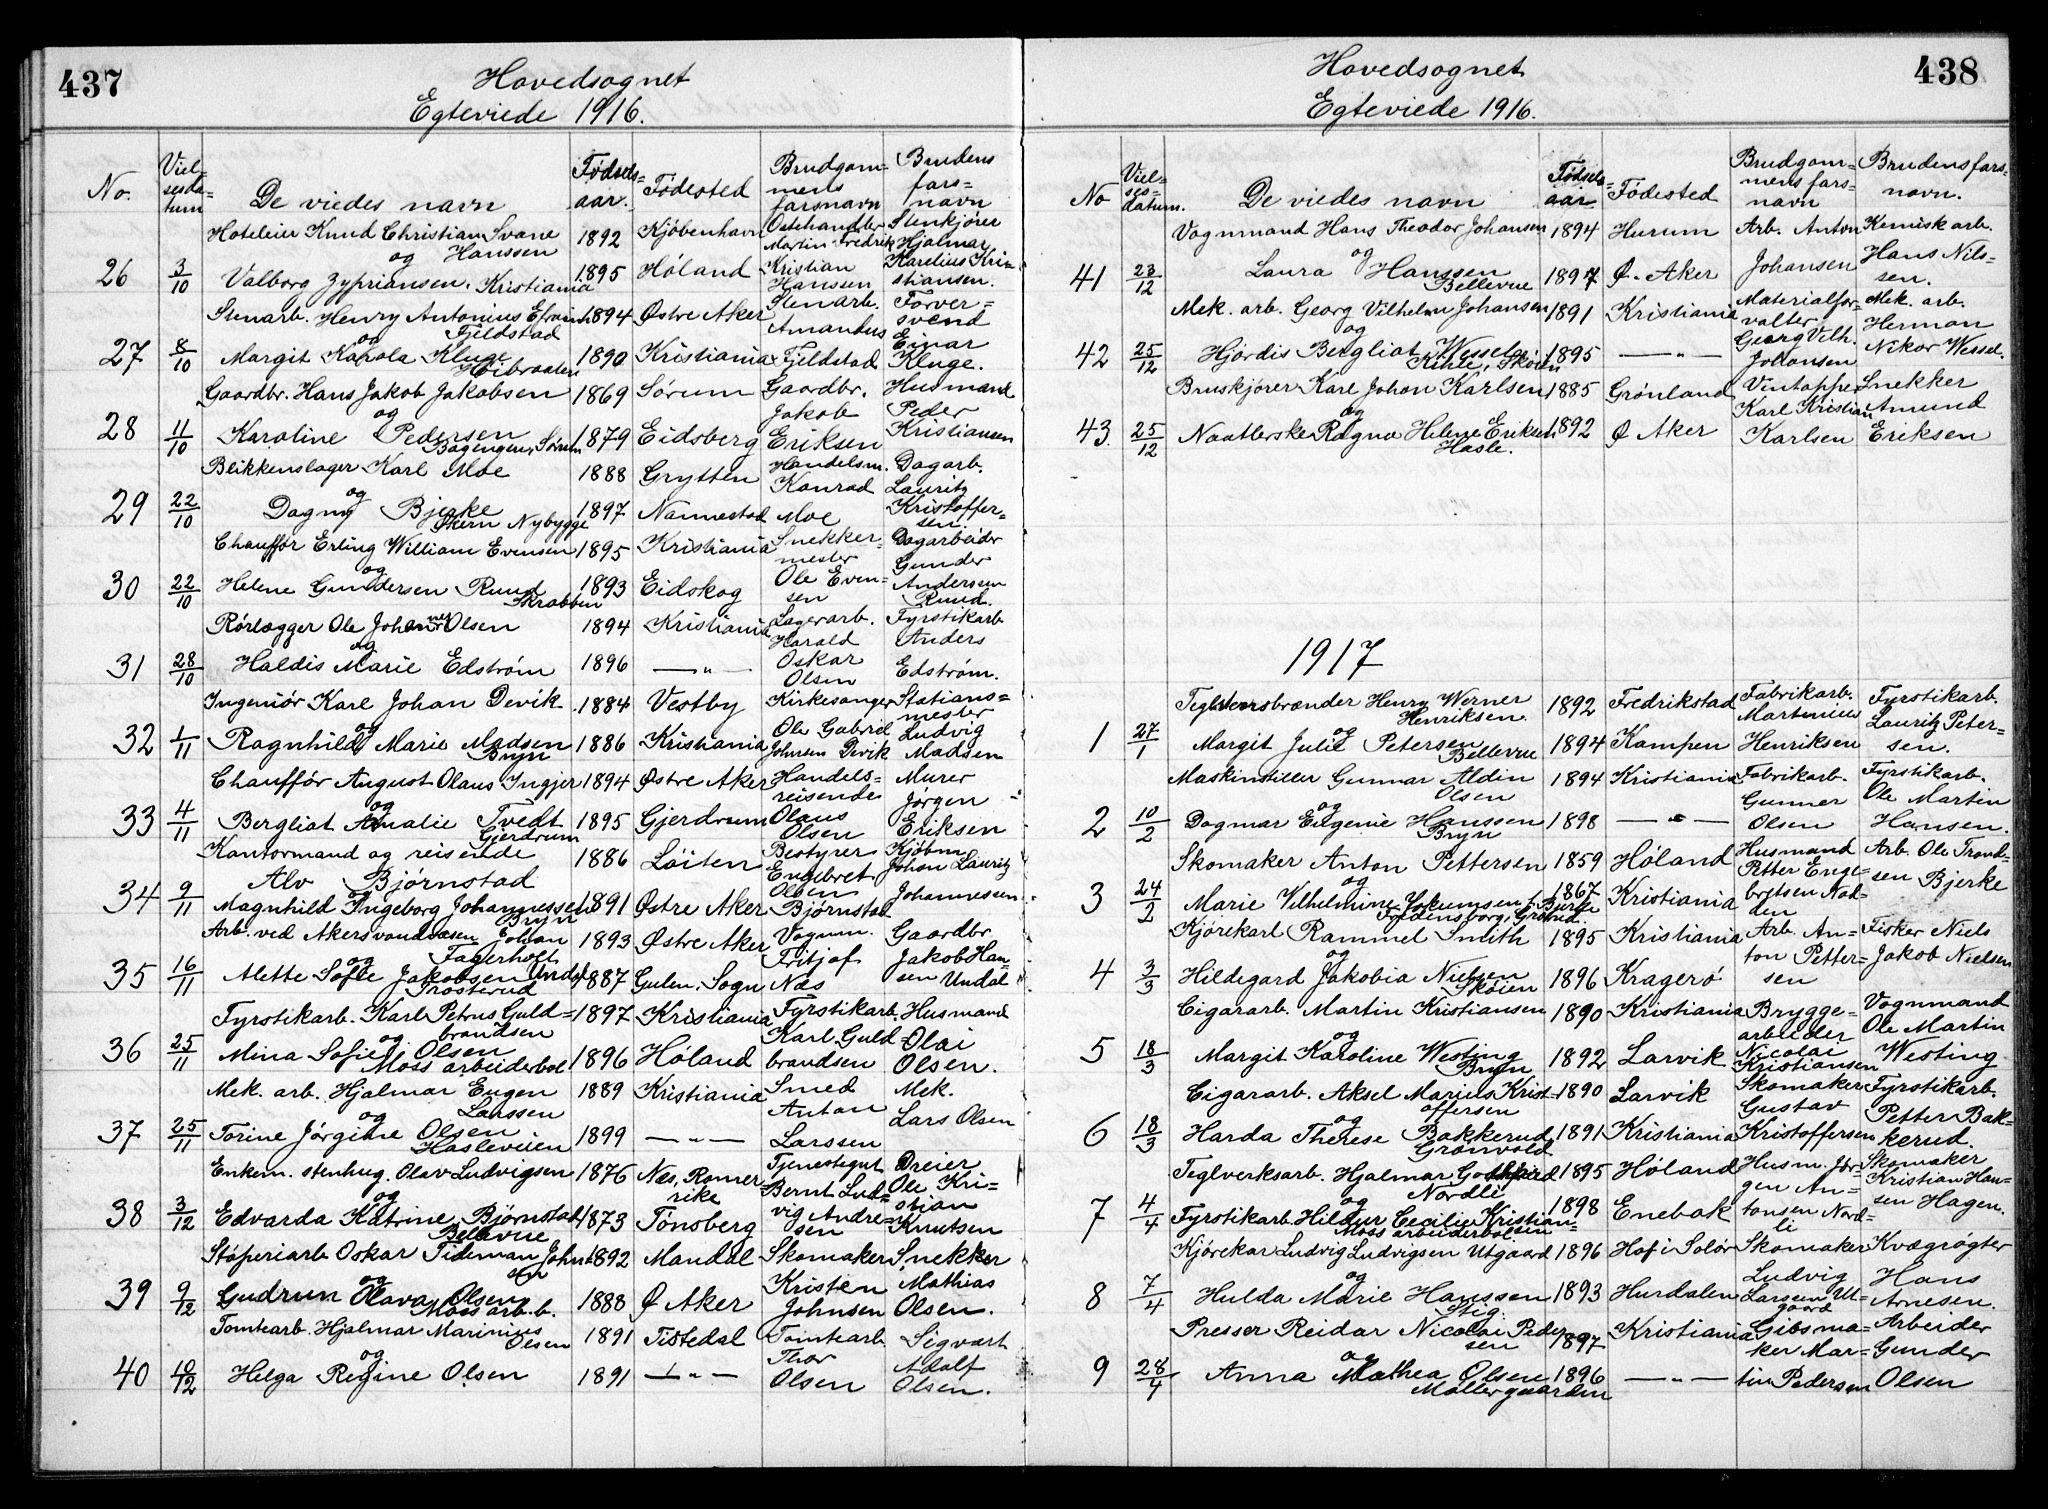 437
Hovedsognet
Egteviede 1916.
No. Vielsesdatum De viedes navn Fødselsaar. Fødested Brudgommens farsnavn Brudens farsnavn
Hoteleier Knud Christian Svane Hanssen 1892 Kjøbenhavn Ostehandler Martin Fredrik Kristian Hanssen
og
26 3/10 Valborg Zypriansen. Kristiania 1895 Høland Stenkjører Hjalmar Karelius Kristiansen.
Stenarb. Henry Antonius Efraim Fjeldstad 1894 Østre Aker Stenarb. Amandus Fjeldstad
og
27 8/10 Margit Karola Kluge 1890 Kristiania Farversvend Einar Kluge.
Gaardbr. Hans Jakob Jakobsen 1869 Sørum Gaardbr. Jakob Eriksen
og
28 11/10 Karoline Pedersen 1879 Eidsberg Husmand Peder Kristiansen
Blikkenslager Karl Moe 1888 Grytten Handelsm. Konrad Moe
og
29 22/10 Dagny Bjerke Nybygge 1897 Nannestad Dagarb. Lauritz Kristoffersen
Chauffør Erling William Evensen 1895 Kristiania Snekkermester Ole Evensen
og
30 22/10 Helene Gundersen Ruud Skrabben 1893 Eidskog Dagarbeider Gunder Andersen Ruud.
Rørlægger Ole Johannes Olsen 1894 Kristiania Lagerarb. Harald Oskar Olsen
og
31 28/10 Haldis Marie Edstrøm 1896 — „ — Fyrstikarb Anders Edstrøm.
Ingeniør Karl Johan Devik 1884 Vestby Kirkesanger Ole Gabriel Johnsen Devik
og
32 1/11 Ragnhild Marie Madsen Bryn 1886 Kristiania Stationsmester Ludvig Madsen
Chauffør August Olaus Ingjer 1894 Østre Aker Handelsreisende Olaus Olsen
og
33 4/11 Bergliot Amalie Tvedt Gjerdrum 1895 Gjerdrum Murer Jørgen Eriksen
Kontormand og reisende Alv Bjørnstad 1886 Løiten Bestyrer Engebret Olsen Bjørnstad
og
34 9/11 Magnhild Ingeborg Johannessen Bryn 1891 Østre Aker Kjøbm Johan Lauritz Johannessen
Arb. ved Akersvandvæsen Johan Fagerholt 1893 Østre Aker Vognm. Fritjof Næs
og
35 16/11 Alette Sofie Jakobsen Undal Trosterud 1887 Gulen, Sogn Gaardbr Jakob Hansen Undal
Fyrstikarb. Karl Petrus Guldbrandsen 1897 Kristiania Fyrstikarb. Karl Guldbrandsen
og
36 25/11 Mina Sofie Olsen Moss arbeiderbol 1896 Høland Husmand Olai Olsen.
Mek. arb. Hjalmar Eugen Larssen 1889 Kristiania Smed Anton Larssen
og
37 25/11 Torine Jørgine Olsen Hasleveien 1899 — „ — Mek. Lars Olsen
Enkem. stenhug. Olav Ludvigsen 1876 Nes, Romerrike Tjenestegut Bernt Ludvig Andresen
og
38 3/12 Edvarda Katrine Bjørnstad Bellevue 1873 Tønsberg Dreier Ole Kristian Knutsen
Støperiarb Oskar Tideman Johnsen 1892 Mandal Skomaker Kristen Johnsen
og
39 9/12 Gudrun Olava Olsen Moss arb. b. 1888 Ø Aker Snekker Mathias Olsen.
Tomtearb. Hjalmar Marinius Olsen 1891 Tistedal Tomtearb. Thor Olsen
og
40 10/12 Helga Regine Olsen 1891 — „ — Sigvart Adolf Olsen.
438
Hovedsognet
Egteviede 1916.
No Vielsesdatum. De viedes navn Fødselsaar Fødested Brudgommens farsnavn Brudens farsnavn.
Vognmand Hans Theodor Johansen 1894 Hurum Arb. Anton Johansen
og
41 23/12 Laura Hanssen Bellevue 1897 Ø. Aker Kemisk arb. Hans Nilssen.
Mek. arb. Georg Vilhelm Johansen 1891 Kristiania Materialforvalter Georg Vilh. Johansen
og
42 25/12 Hjørdis Bergliot Wessel Skøien 1895 — „ — Mek. arb. Herman Nikor Wessel.
Bruskjører Karl Johan Karlsen 1885 Grønland Vintapper Karl Kristian Karlsen
og
43. 25/12 Naatlerske Ragna Helene Eriksen Hasle. 1892 Ø Aker Snekker Amund Eriksen
1917
Teglverksbrænder Henry Werner Henriksen. 1892 Fredrikstad Fabrikarb. Martinius Henriksen
og
1 27/1 Margit Julie Petersen Bellevue 1894 Kampen Fyrstikarb. Lauritz Petersen.
Maskinstiller Gunnar Aldin Olsen 1894 Kristiania Fabrikarb. Gunner Olsen
og
2 10/2 Dagmar Eugenie Hanssen Bryn 1898 — „ — Fyrstikarb. Ole Martin Hansen.
Skomaker Anton Pettersen 1859 Høland Husmand Petter Engebretsen Nadden
og
3 24/2 Marie Vilhelmine Jokumsen f. Bjerke 1867 Kristiania Arb. Ole Trondsen Bjerke
Kjørekarl Rammel Smith 1895 Kristiania Arb. Anton Pettersen
og
4 3/3 Hildegard Jakobia Nielsen Skøien 1896 Kragerø Fisker Niels Jakob Nielsen
Cigararb. Martin Kristiansen 1890 Kristiania Bryggearbeider Nicolai Kristiansen
og
5 18/3 Margit Karoline Westing Bryn 1892 Larvik Vognmand Ole Martin Westing
Cigararb. Aksel Marius Kristoffersen 1890 Larvik Skomaker Gustav Kristoffersen
og
6 18/3 Harda Therese Bakkerud Grønvold 1891 Kristiania Fyrstikarb. Petter Bakkerud.
Teglverksarb. Hjalmar Gotfried Nordli 1895 Høland Husm. Jørgen Antonsen Nordli
og
7 4/4 Fyrstikarb. Hildur Cecilie Kristiansen Moss arbeiderbol 1898 Enebak Skomaker Kristian Hansen Hagen.
Kjørekar Ludvig Ludvigsen Utgaard 1896 Hof i Solør Skomaker Ludvig Larsen Utgaard
og
8 7/4 Hulda Marie Hanssen Stig. 1893 Hurdalen Kvægrøgter Hans Arnesen.
Presser Reidar Nicolai Pedersen 1897 Kristiania Gibsmaker Martin Pedersen
og
9 28/4 Anna Mathea Olsen Møllergaarden 1896 — „ — Arbeider Gunder Olsen